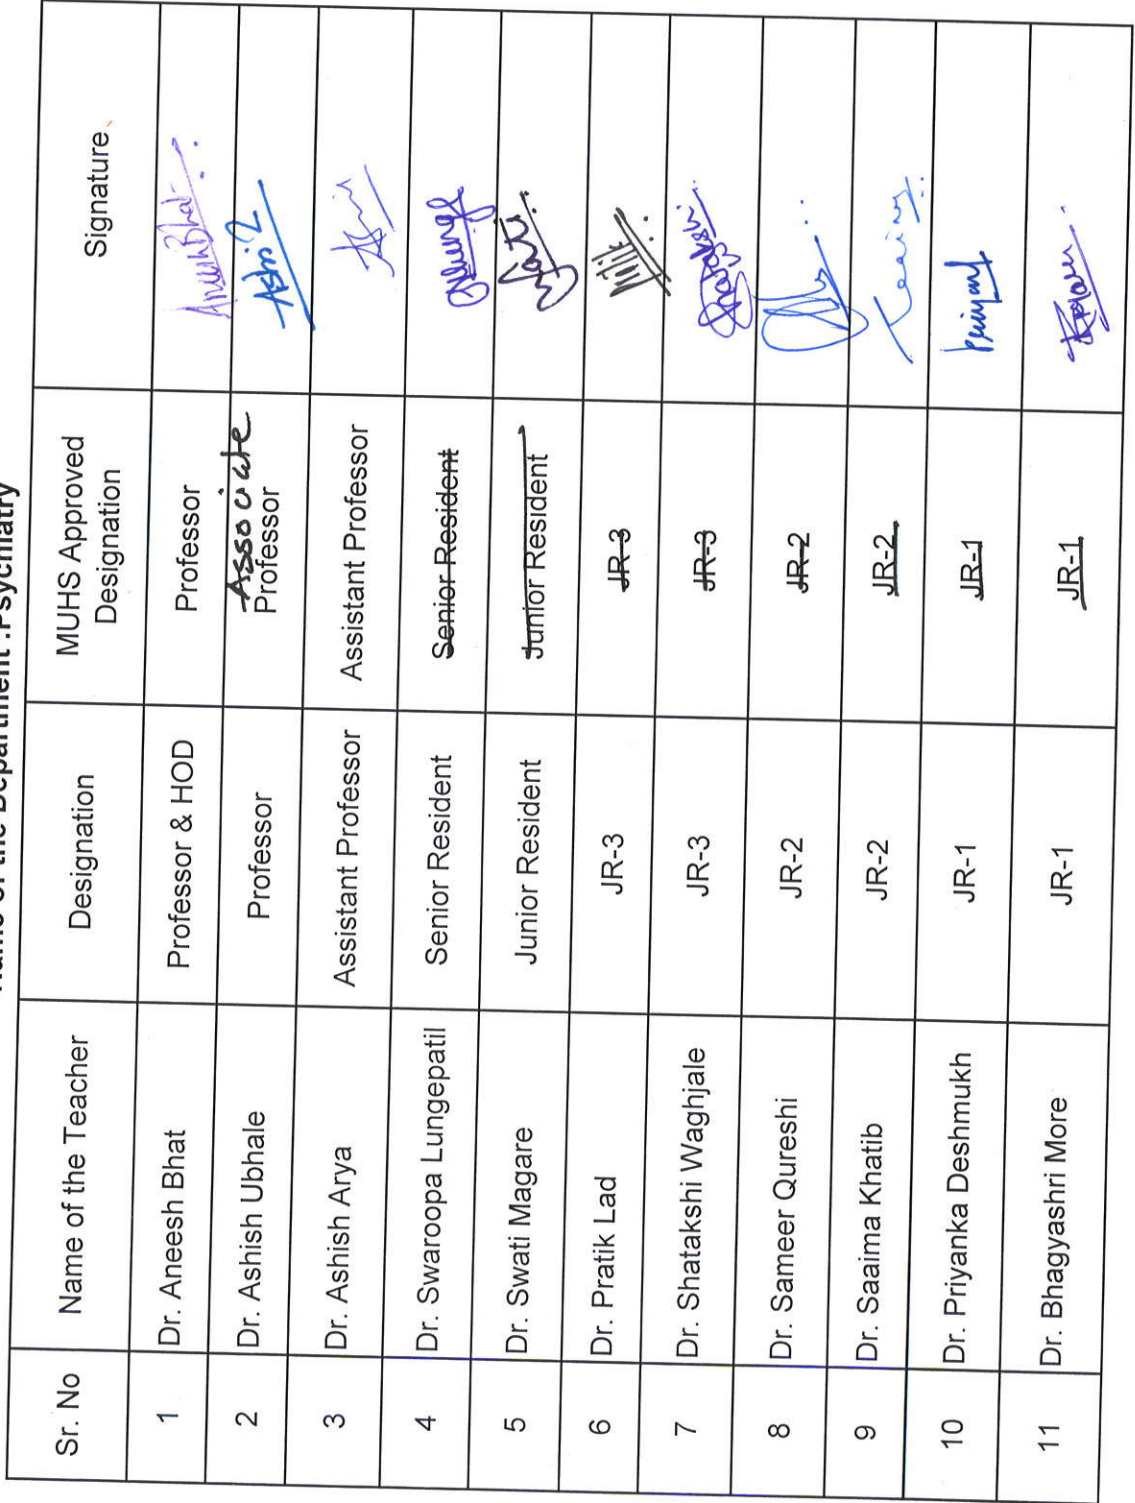 Name of the Department :Psychiatry
Sr. No Name of the Teacher Designation MUHS Approved Designation Signature
1 Dr. Aneesh Bhat Professor & HOD Professor AneeshBhat
2 Dr. Ashish Ubhale Professor Associate Professor
3 Dr. Ashish Arya Assistant Professor Assistant Professor
4 Dr. Swaroopa Lungepatil Senior Resident Senior Resident
5 Dr. Swati Magare Junior Resident Junior Resident
6 Dr. Pratik Lad JR-3 JR-3
7 Dr. Shatakshi Waghjale JR-3 JR-3
8 Dr. Sameer Qureshi JR-2 JR-2
9 Dr. Saaima Khatib JR-2 JR-2
10 Dr. Priyanka Deshmukh JR-1 JR-1
11 Dr. Bhagyashri More JR-1 JR-1